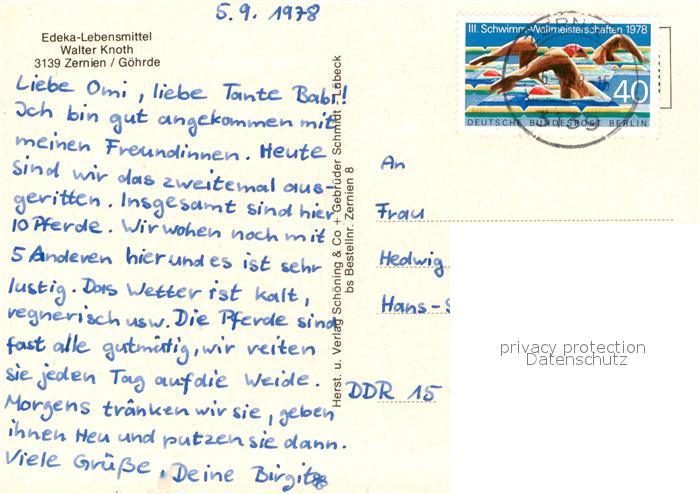 5.9.1978
Edeka-Lebensmittel
Walter Knoth
3139 Zernien / Göhrde
Liebe Omi, liebe Tante Babi!
Ich bin gut angekommen mit
meinen Freundinnen. Heute
sind wir das zweitemal aus-
geritten. Insgesamt sind hier
10 Pferde. Wir wohen noch mit
5 Anderen hier und es ist sehr
lustig. Das Wetter ist kalt,
regnerisch usw. Die Pferde sind
fast alle gutmütig, wir reiten
sie jeden Tag auf die Weide.
Morgens tränken wir sie, geben
ihnen Heu und putzen sie dann.
Viele Grüße, Deine Birgit
Herst. u. Verlag Schöning & Co + Gebrüder Schmidt - Lübeck
bs Bestellnr. Zernien 8
III. Schwimm-Weltmeisterschaften 1978
40
DEUTSCHE BUNDESPOST BERLIN
3139
An
Frau
Hedwig
Hans-S
DDR 15
privacy protection
Datenschutz